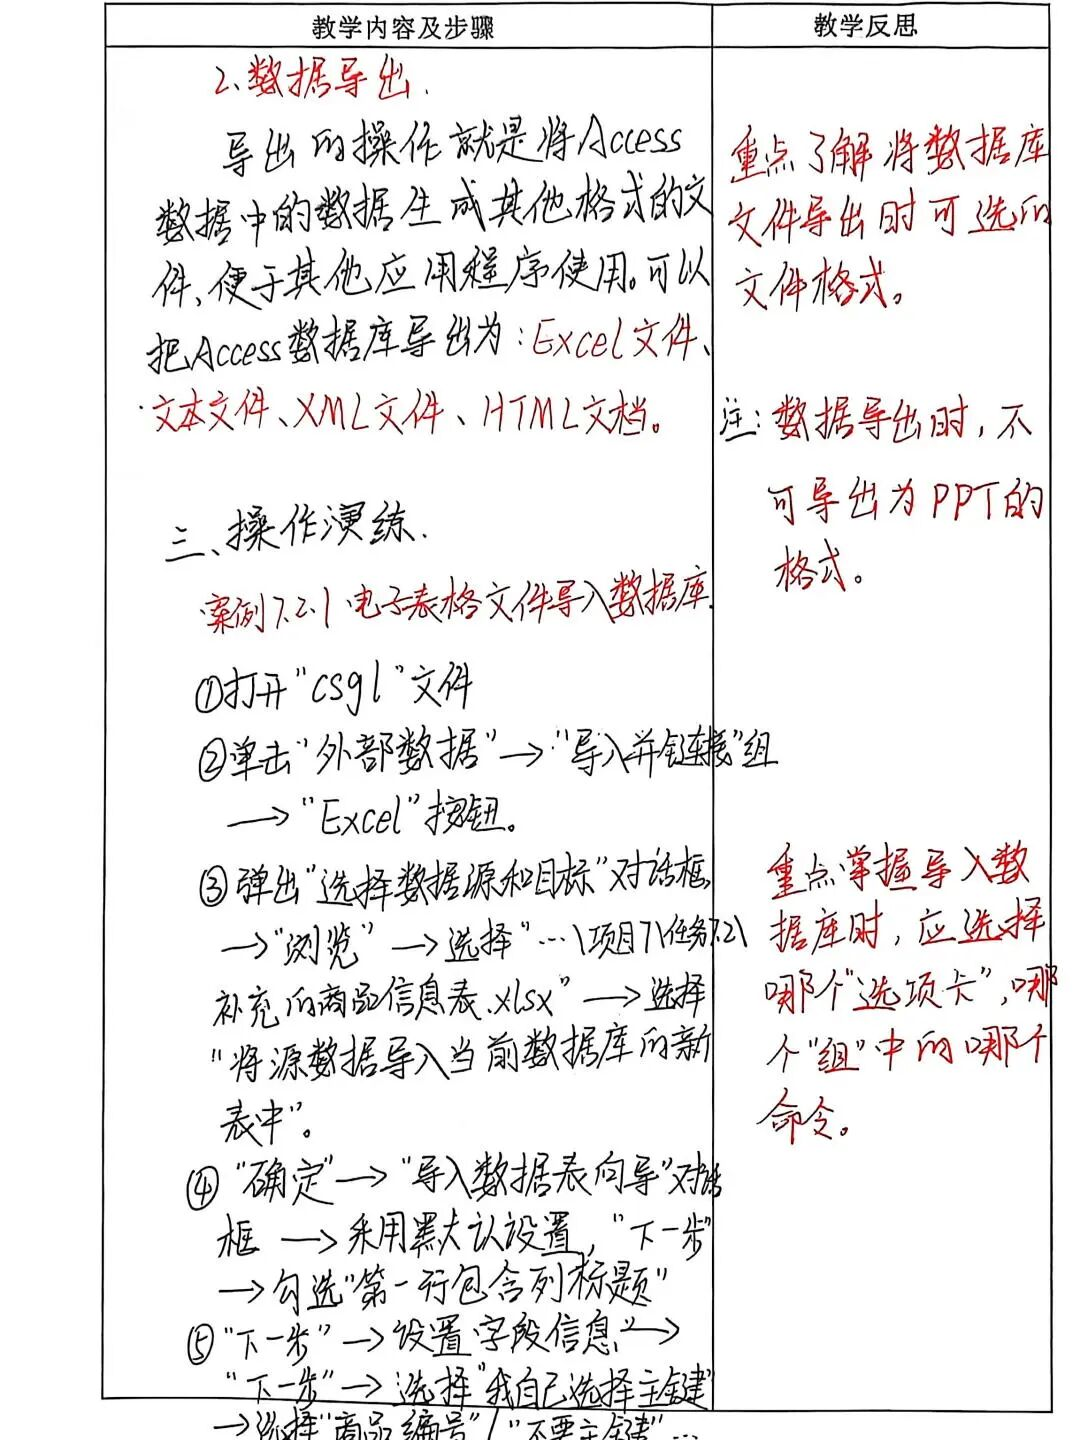 教学内容及步骤
2、数据导出.
导出的操作就是将Access
数据中的数据生成其他格式的文
件、便于其他应用程序使用。可以
把Access数据库导出为:Excel文件、
文本文件、XML文件、HTML文档。
三、操作演练.
案例7.2.1 电子表格文件导入数据库
①打开"csgl"文件
②单击"外部数据"→"导入并链接"组
→"Excel"按钮。
③弹出"选择数据源和目标"对话框,
→"浏览"→选择"...\项目7\任务7.2\
补充的商品信息表.xlsx"→选择
"将源数据导入当前数据库的新
表中"。
④"确定"→"导入数据表向导"对话
框 →采用默认设置,"下一步"
→勾选"第一行包含列标题"
⑤"下一步"→设置字段信息"→
"下一步"→选择"我自己选择主键"
→选择"商品编号"/"不要主键"...
教学反思
重点了解将数据库
文件导出时可选的
文件格式。
注:数据导出时,不
可导出为PPT的
格式。
重点掌握导入数
据库时,应选择
哪个"选项卡",哪
个"组"中的哪个
命令。